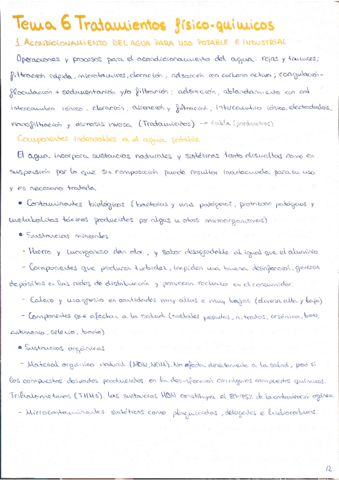 Tema 6 Tratamientos físico-químicos
1. ACONDICIONAMIENTO DEL AGUA PARA USO POTABLE E INDUSTRIAL
Operaciones y procesos para el acondicionamiento del agua; rejas y tamices;
filtración rápida, microtamices, cloración, adsorción con carbono activo; coagulación-
floculación + sedimentación y/o filtración; adsorción, ablandamiento con cal
intercambio iónico, cloración, aireación y filtración, intercambio iónico, electrodiálisis,
nanofiltración y ósmosis inversa. (Tratamientos) → tabla
Componentes indeseables en el agua potable
El agua incorpora sustancias naturales y sintéticas tanto disueltas como en
suspensión por lo que su composición puede resultar inadecuada para su uso
y es necesario tratarla.
• Contaminantes biológicos (bacterias y virus patógenos, protozoos patógenos y
metabolitos tóxicos producidos por algas u otros microorganismos)
• Sustancias minerales
- Hierro y manganeso dan olor, y sabor desagradable al igual que el aluminio
- Componentes que producen turbidez, impiden una buena desinfección, generan
depósitos en las redes de distribución y provocan rechazo en el consumidor
- Calcio y magnesio en cantidades muy altas o muy bajas (dureza alta y baja)
- Componentes que afectan a la salud (metales pesados, nitratos, arsénico, boro,
antimonio, selenio, bario)
• Sustancias orgánicas
- Material orgánico natural (MON, NOM). No afecta directamente a la salud, pero sí
los compuestos derivados producidos en la desinfección con algunos compuestos químicos.
Trihalometanos (THMs). Las sustancias MON constituyen el de la contaminación orgánica
- Microcontaminantes sintéticos como plaguicidas, detergentes e hidrocarburos.
12